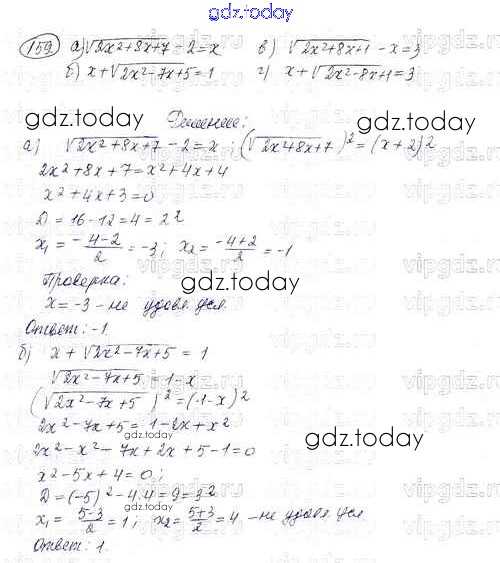 gdz.today
159 а) √2x²+8x+7 - 2 = x в) √2x²+8x+1 - x = 3
б) x + √2x²-7x+5 = 1 г) x + √2x²-8x+1 = 3
gdz.today Решение: gdz.today
а) √2x²+8x+7 - 2 = x ; (√2x48x+7)² = (x+2)2
2x²+8x+7 = x²+4x+4
x²+4x+3=0
D = 16-12=4=2²
x₁ = -4-2/2 = -3; x₂ = -4+2/2 = -1
Проверка:
gdz.today gdz.today
x = -3 - не удовл. усл.
Ответ: -1.
б) x + √2x²-7x+5 = 1
√2x²-7x+5 = 1-x
(√2x²-7x+5)² = (1-x)²
2x²-7x+5 = 1-2x+x²
gdz.today
2x²-x²-7x+2x+5-1=0
x²-5x+4=0;
D = (-5)²-4.4=9=3²
x₁ = 5-3/2 = 1; x₂ = 5+3/2 = 4 - не удовл. усл
gdz.today
Ответ: 1.